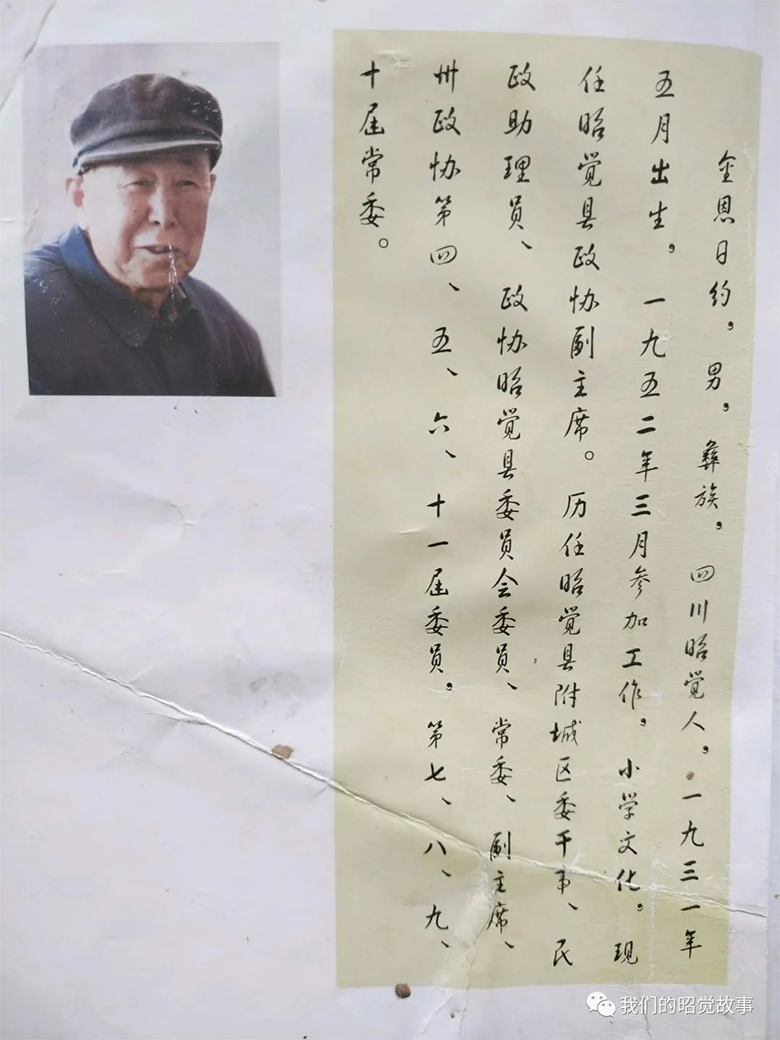 金恩日约，男，彝族，四川昭觉人，一九三一年
五月出生，一九五二年三月参加工作，小学文化。现
任昭觉县政协副主席。历任昭觉县附城区委干事、民
政助理员、政协昭觉县委员会委员、常委、副主席、
州政协第四、五、六、十一届委员，第七、八、九、
十届常委。
我们的昭觉故事